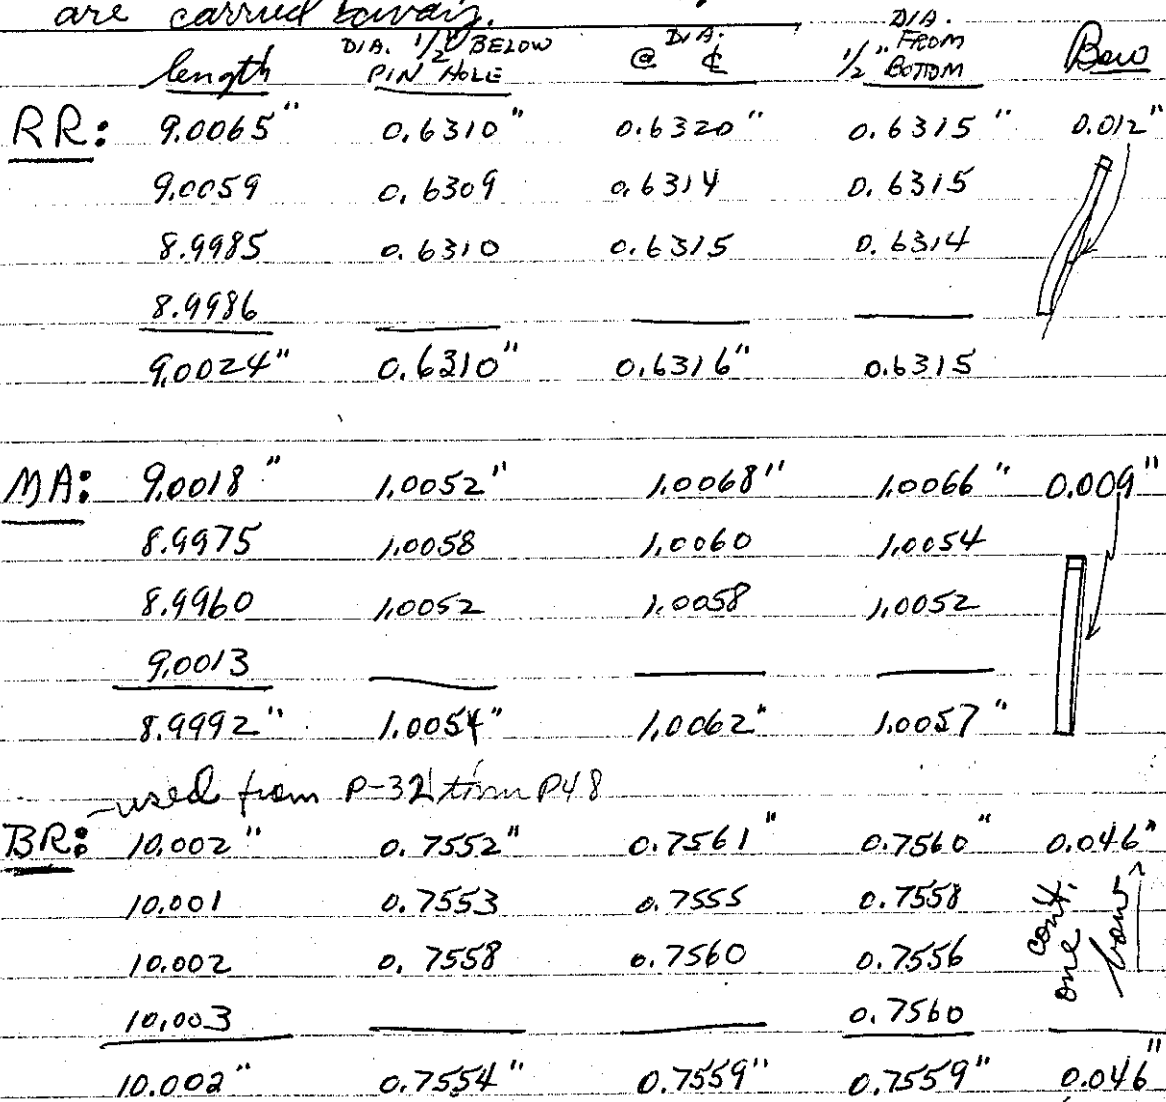 are carried
length DIA. 1/2" BELOW PIN HOLE DIA. @ ℄ DIA. 1/2" FROM BOTTOM Bow
RR: 9.0065" 0.6310" 0.6320" 0.6315" 0.012"
9.0059 0.6309 0.6314 0.6315
8.9985 0.6310 0.6315 0.6314
8.9986
9.0024" 0.6310" 0.6316" 0.6315
MA: 9.0018" 1.0052" 1.0068" 1.0066" 0.009"
8.9975 1.0058 1.0060 1.0054
8.9960 1.0052 1.0058 1.0052
9.0013
8.9992" 1.0054" 1.0062" 1.0057"
-used from P-32 thru P48
BR: 10.002" 0.7552" 0.7561" 0.7560" 0.046"
10.001 0.7553 0.7555 0.7558
10.002 0.7558 0.7560 0.7556
cont.
one bow
10.003 0.7560
10.002" 0.7554" 0.7559" 0.7559" 0.046"